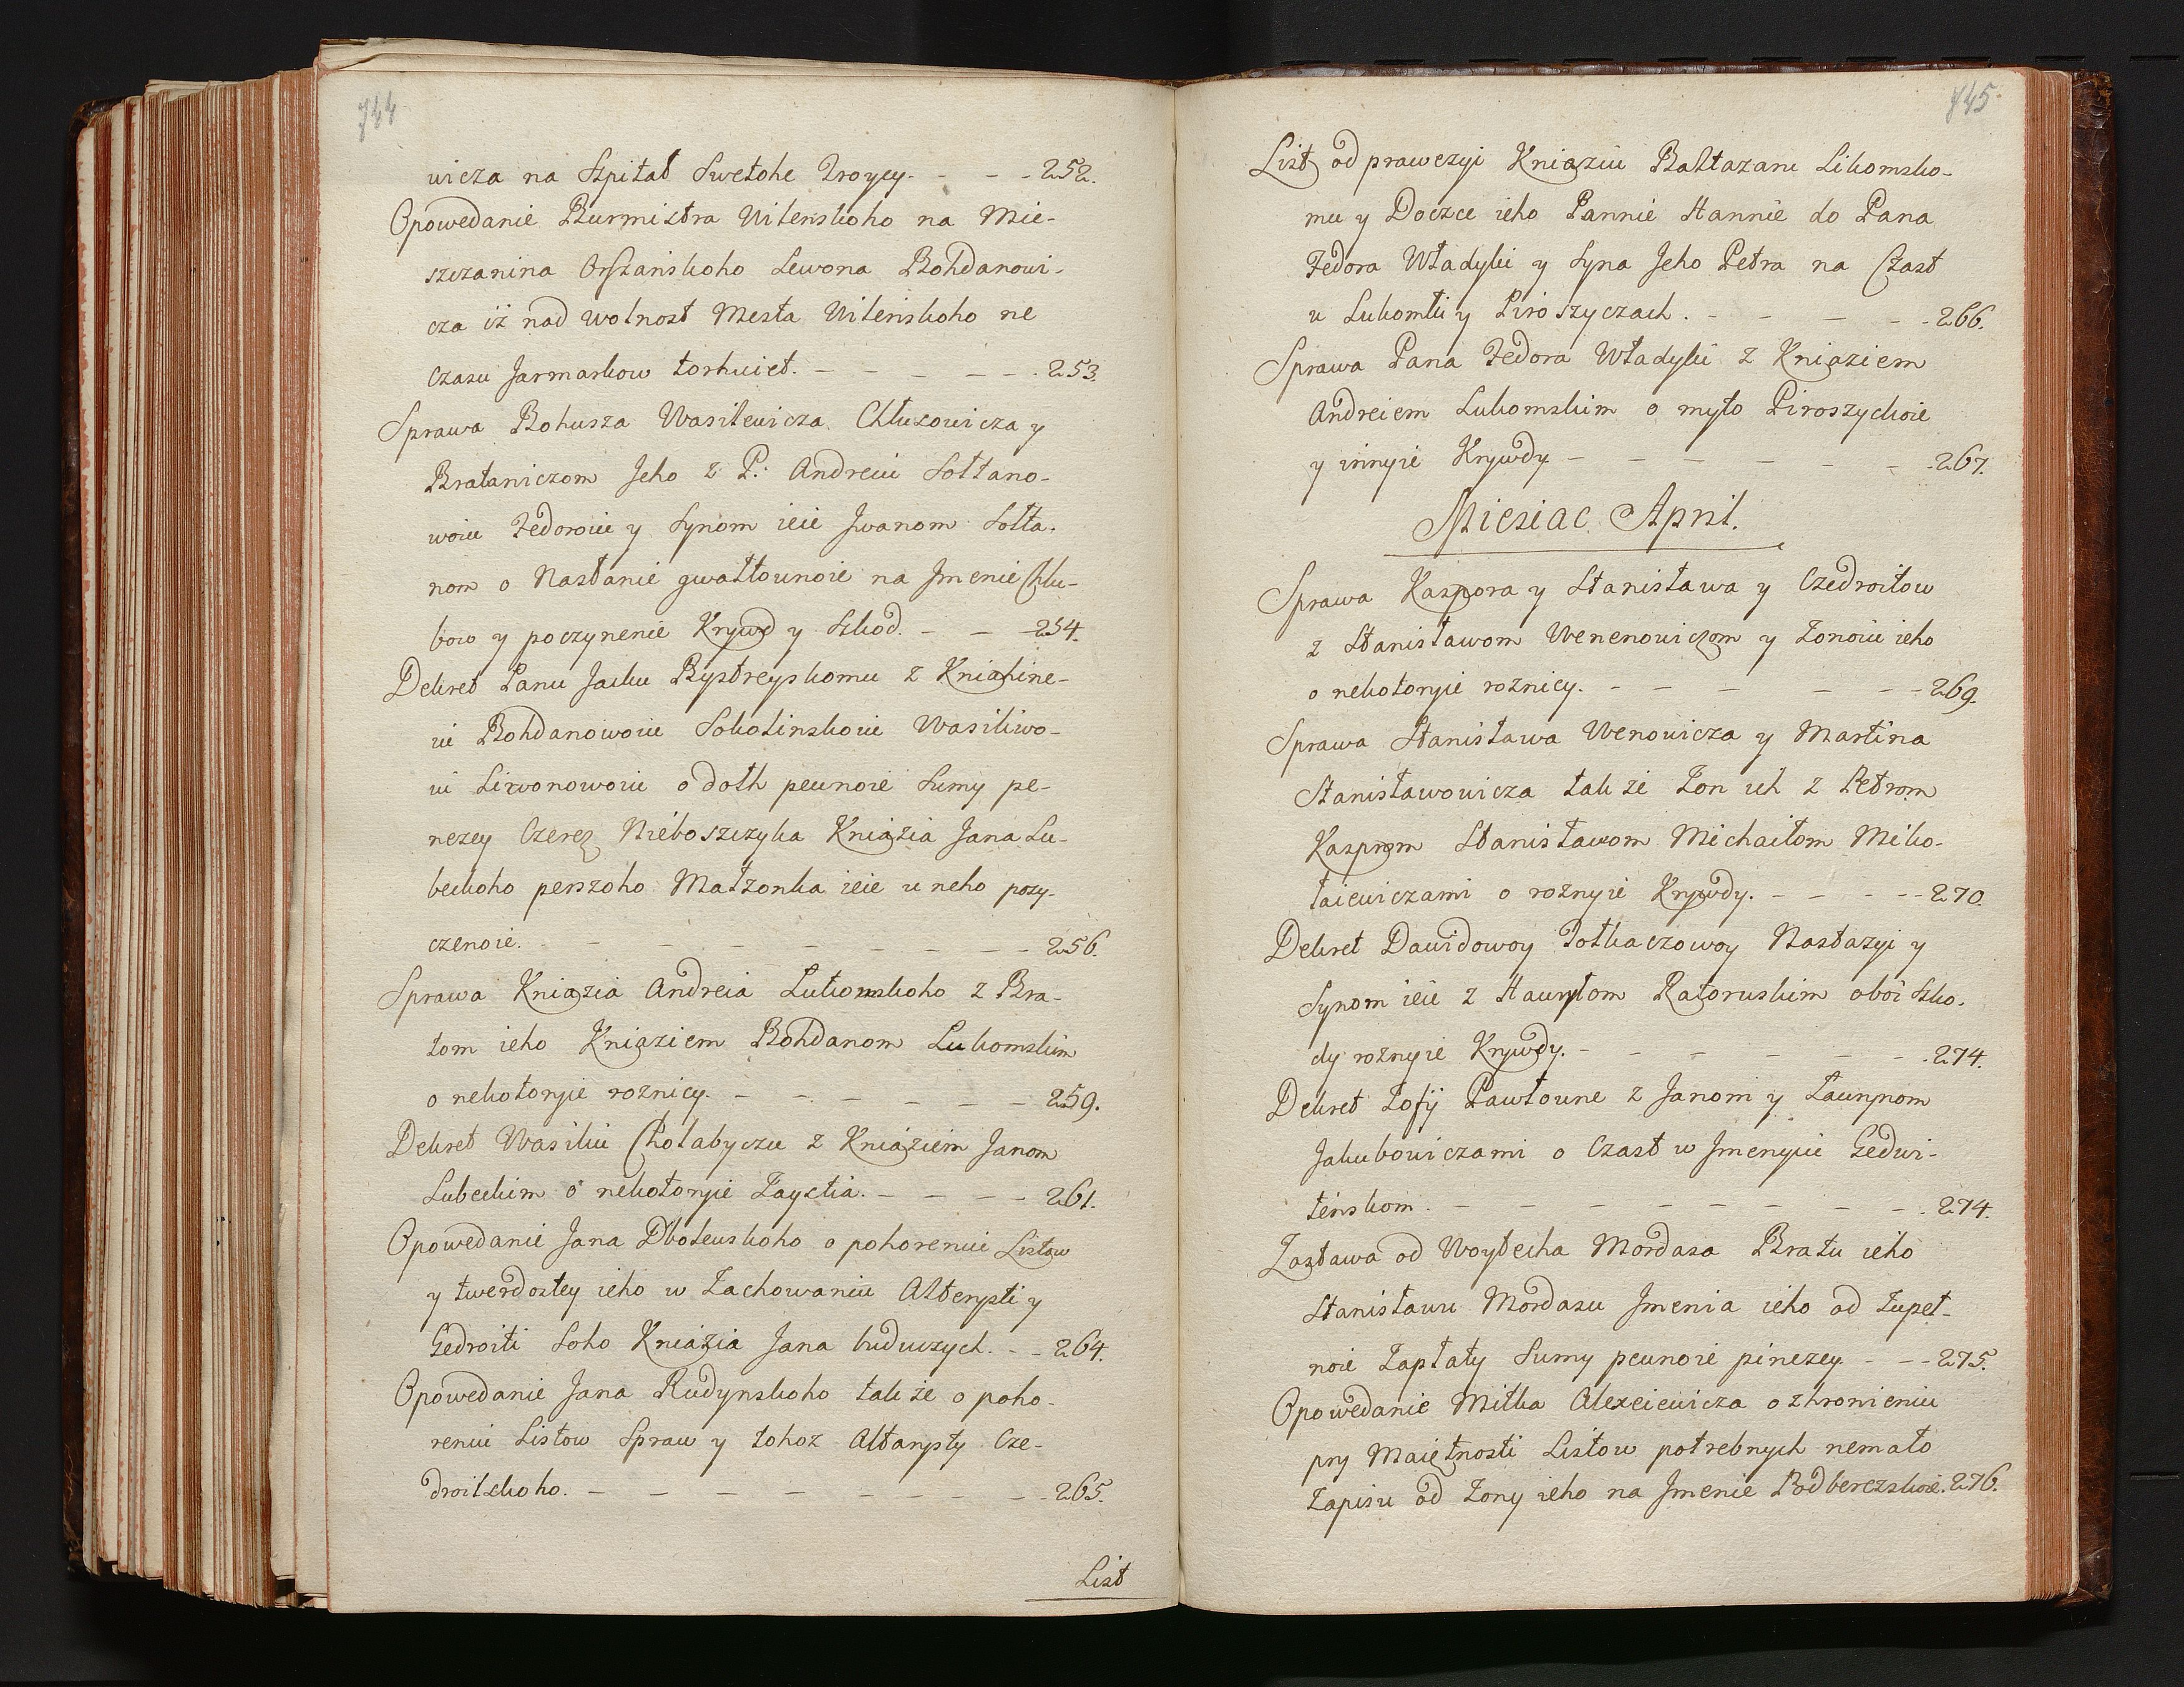 744
wicza na Szpitał Swetohe Troycy. - - - 252.
Opowedanie Burmistra Wilenskoho na Mie-
szczanina Orszańskoho Lewona Bohdanowi-
cza iż nad wolnost Mesta Wilenskoho ne
Czasu Jarmarkow torhuiet. - - - - - - 253.
Sprawa Bohusza Wasilewicza Chłusowicza y
Brataniczom Jeho z P: Andreiu Sołtano-
woiu Fedoroiu y Synom ieie Jwanom Sołta-
nom o Nasłanie gwałtownoie na Jmenie Chlu-
bow y poczynenie Krywd y Szkod. - - - 254.
Dekret Panu Jacku Bystreyskomu z Kniahine-
iu Bohdanowoiu Sokolinskoiu Wasiliwo-
iu Liwonowoiu o dolh pewnoie Sumy pe-
nezey Czerez Nieboszczyka Kniazia Jana Lu-
beckoho perszoho Małzonka ieie u neho pozy-
czenoie. - - - - - - - - 256.
Sprawa Kniazia Andreia Lukomskoho z Bra-
tom ieho Kniaziem Bohdanom Lukomskim
o nekotoryie roznicy. - - - - - - 259.
Dekret Wasiliu Chołabyczu z Kniaziem Janom
Lubeckim o nekotoryie Zaystia. - - - - 261.
Opowedanie Jana Dbolewskoho o pohoreniu Listow
y twerdostey ieho w Zachowaniu Alterysti y
Gedroiti Soho Kniazia Jana buduczych. - - 264.
Opowedanie Jana Rudynskoho tak że o poho-
reniu Listow Spraw y tohoż Altarysty Cze-
droitskoho. - - - - - - - - 265.
List
745.
List od prawczyi Kniaziu Baltazaru Likomsko-
mu y Doczce ieho Pannie Hannie do Pana
Fedora Władyki y Syna Jeho Petra na Czast
u Lukomli y Piroszyczach. - - - - - 266.
Sprawa Pana Fedora Władyki z Kniaziem
Andreiem Lukomskim o myto Piroszyckoie
y innyie Krywdy - - - - - - - 267.
Miesiac April.
Sprawa Kaspora y Stanisława y Czedroitow
z Stanisławom Wenenowiczom y Zonoiu ieho
o nekotoryie roznicy. - - - - - - 269.
Sprawa Stanisława Wenowicza y Martina
Stanisławowicza tak że Zon ich z Petrom
Kasprom Stanisławom Michaiłom Miko-
łaiewiczami o roznyie Krywdy. - - - - 270.
Dekret Dawidowoy Tołkaczowoy Nastazyi y
Synom ieie z Hawryłom Ratoruskim oboi Szko-
dy roznyie Krywdy. - - - - - - - 274.
Dekret Zofij Pawłowne z Janom y Lawrynom
Jakubowiczami o Czast w Jmenyiu Gedwi-
łeńskom. - - - - - - - - 274.
Zastawa od Woytecha Mordasa Bratu ieho
Stanisławu Mordasu Jmenia ieho od Zupeł-
noie Zapłaty Sumy pewnoie pinezey. - - - 275.
Opowedanie Mitka Alexeiewicza o zhronieniu
pry Maiętnosti Listow potrebnych nemało
Zapisu od Zony ieho na Jmenie Podberezskoie. 276.